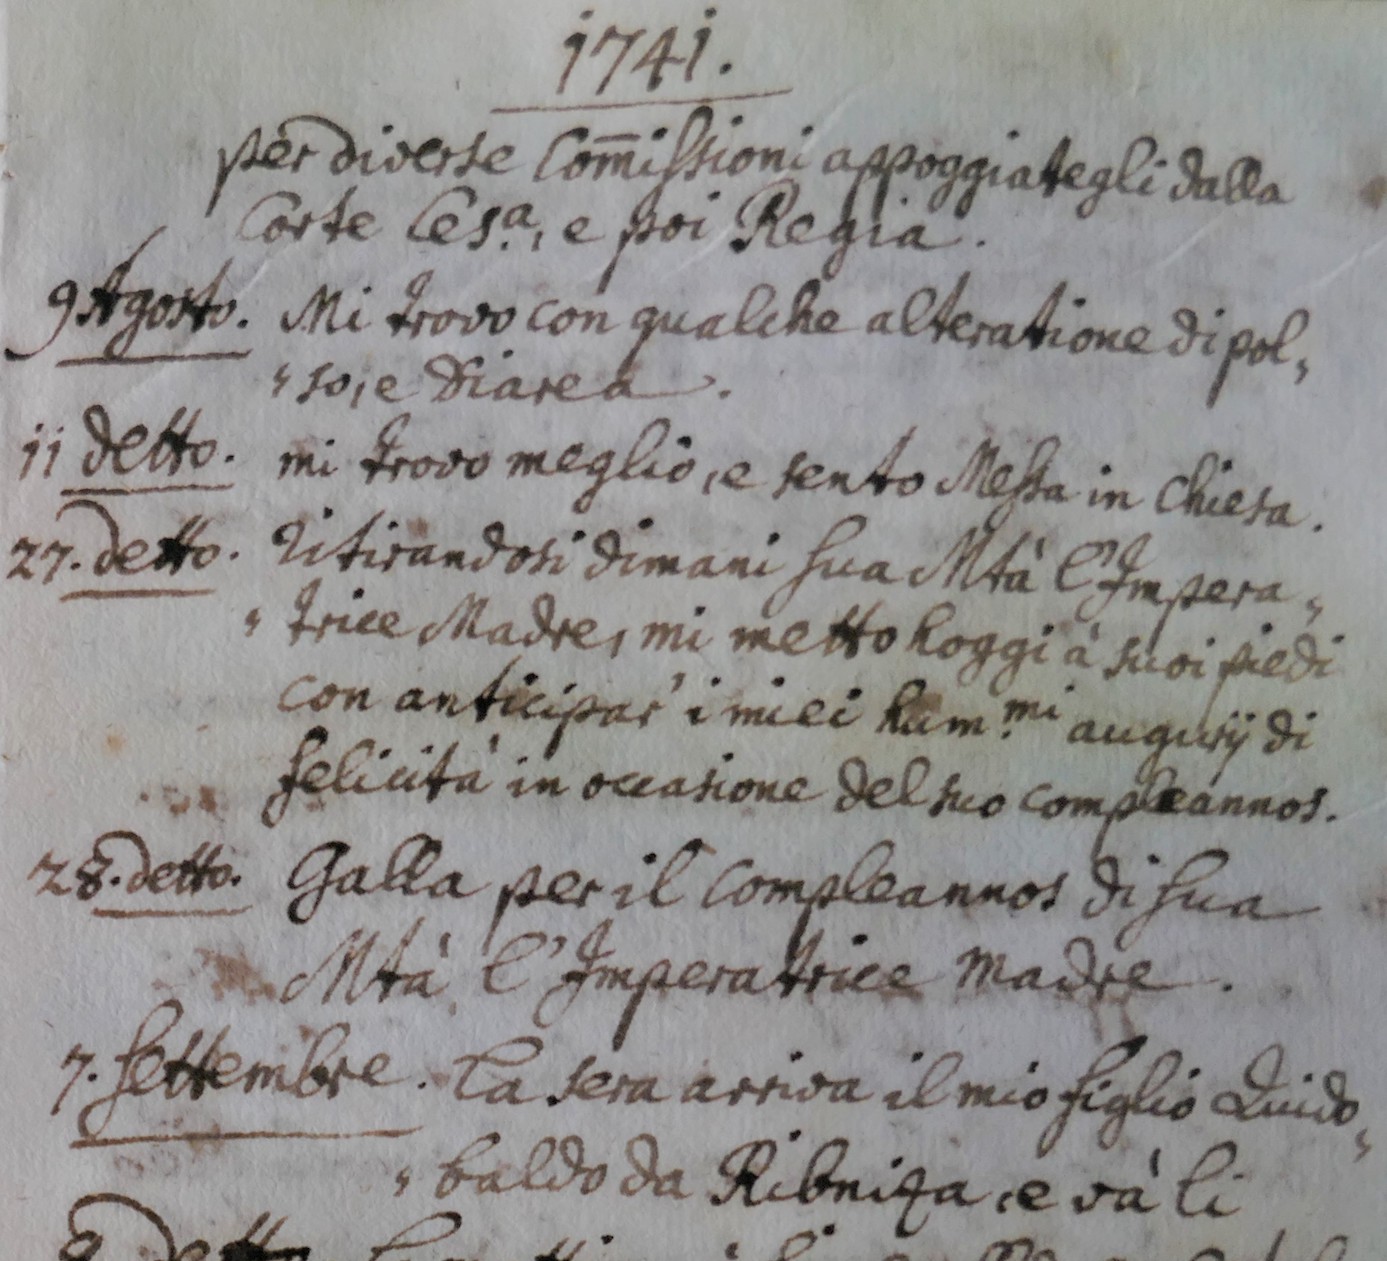 1741.
per diverse Com̅issioni appoggiategli dalla
Corte Ces.a, e poi Regia.
9 Agosto. Mi trovo con qualche alteratione di pol„
„so, e Diarea.
11 detto. mi trovo meglio, e sento Messa in Chiesa.
27. detto. Ritirandosi dimani sua Mtà l'Impera„
„trice Madre, mi metto hoggi à suoi piedi
con anticipar' i miei hum.mi augurij di
felicità in occasione del suo compleannos.
28. detto. Galla per il Compleannos di sua
Mtà l'Imperatrice Madre.
7. Settembre. La sera arriva il mio figlio Quido„
„baldo da Ribniza, e và li